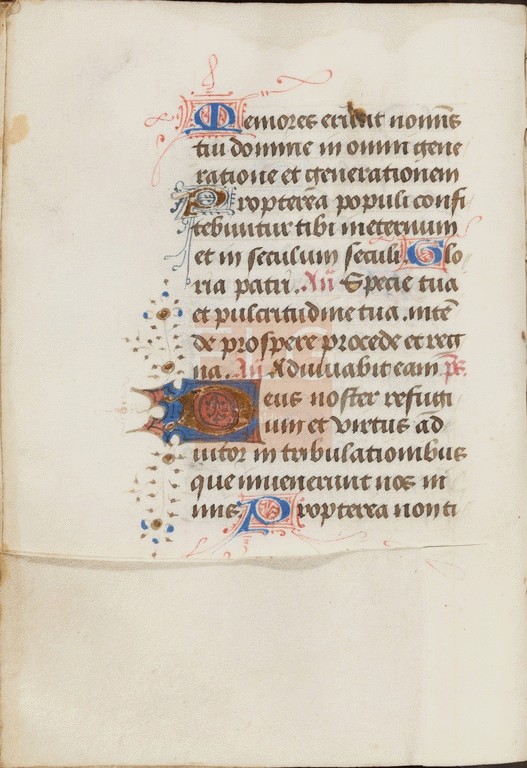 Memores erūt nomīs
tui domine in omni gene
ratione et generationem
Propterea populi confi
tebuntur tibi ineternum
et in seculum seculi. Glo
ria patri. Añ Specie tua
et pulcritudine tua. intē
de prospere procede et reg
na. Añ Adiuvabit eam. ps.
Deus noster refugi
um et virtus ad
iutor in tribulationibus
que invenerunt nos in
mis. Propterea non ti